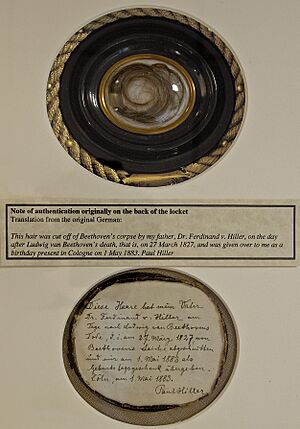 Note of authentication originally on the back of the locket
Translation from the original German:
This hair was cut off Beethoven's corpse by my father, Dr. Ferdinand v. Hiller, on the day
after Ludwig van Beethoven's death, that is, on 27 March 1827, and was given over to me as a
birthday present in Cologne on 1 May 1883. Paul Hiller
Diese Haare hat mein Vater
Dr. Ferdinand v. Hiller am
Tage nach Ludwig van Beethovens
Tode, d.i. am 27. März 1827 von
Beethovens Leiche abgeschnitten
und mir am 1. Mai 1883 als
Geburtstagsgeschenk übergeben.
Cöln, am 1. Mai 1883.
Paul Hiller